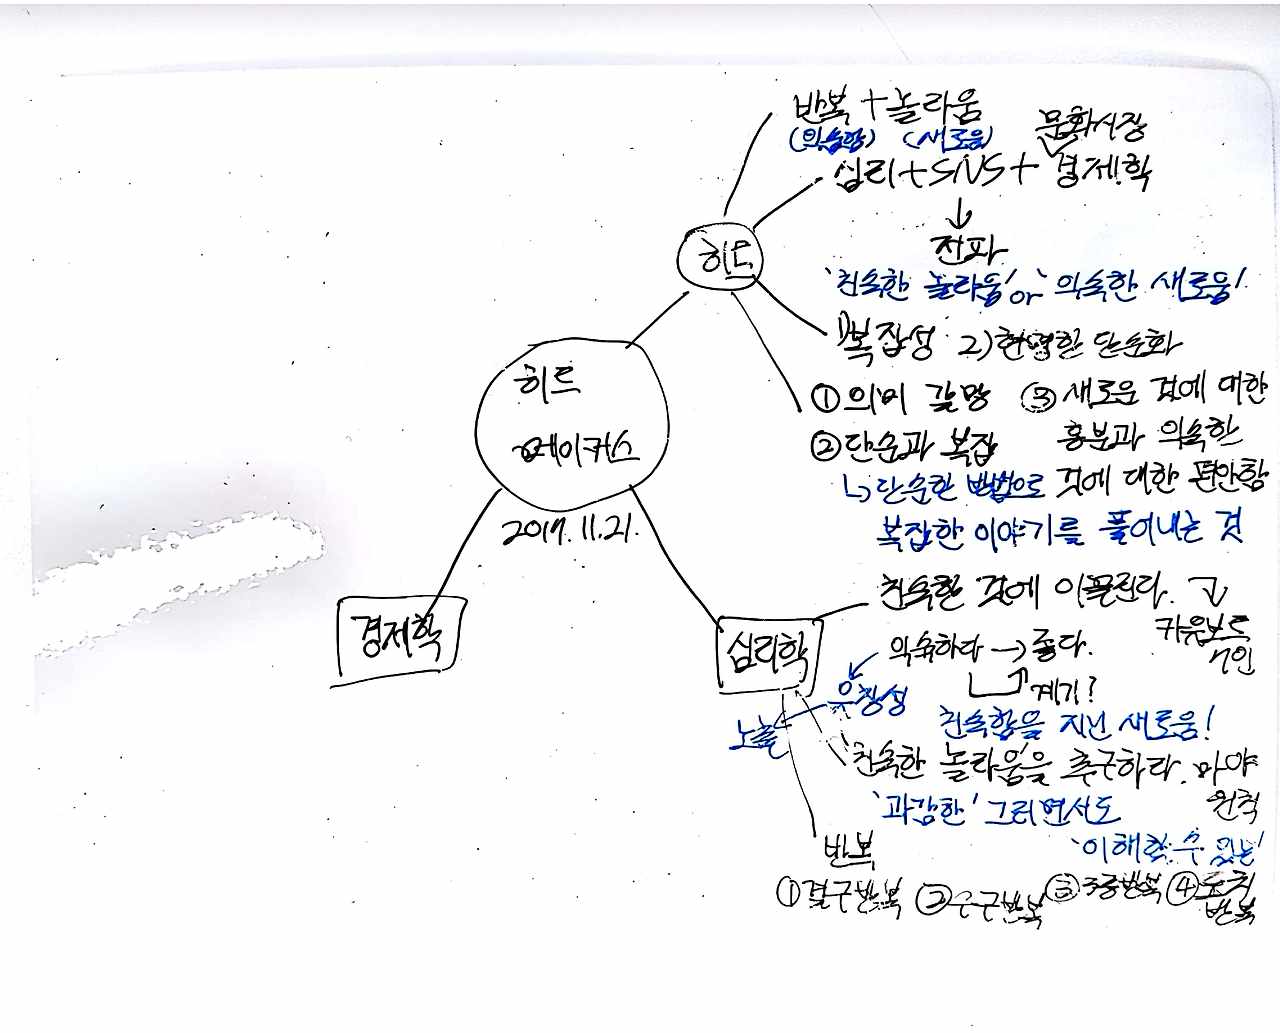 반복 + 놀라움
(익숙함) (새로움)
문화시장
심리 + SNS + 경제학
↓
전파
'친숙한 놀라움' or '익숙한 새로움'
히트
1) 복잡성 2) 현명한 단순화
① 의미 갈망
② 단순과 복잡
↳ 단순한 방법으로
복잡한 이야기를 풀어내는 것
③ 새로운 것에 대한
흥분과 익숙한
것에 대한 편안함
히트
메이커스
2017. 11. 21.
경제학
심리학
친숙한 것에 이끌린다.
카유보트
7인
익숙하다 → 좋다.
계기?
유창성
노출
친숙함을 지닌 새로움!
'친숙한 놀라움'을 추구하라. 마야
원칙
'과감한' 그러면서도
'이해할 수 있는'
반복
① 결구반복 ② 수구반복 ③ 3중반복 ④ 도치
반복